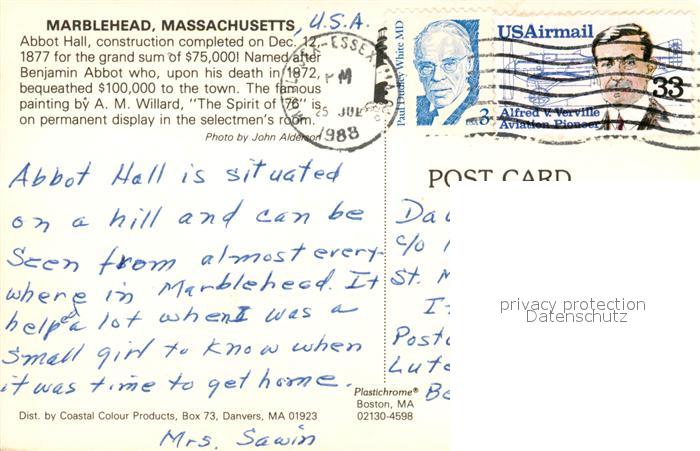 MARBLEHEAD, MASSACHUSETTS, U.S.A.
Abbot Hall, construction completed on Dec. 12,
1877 for the grand sum of $75,000! Named after
Benjamin Abbot who, upon his death in 1872,
bequeathed $100,000 to the town. The famous
painting by A. M. Willard, "The Spirit of '76" is
on permanent display in the selectmen's room.
Photo by John Alderson
ESSEX
PM
25 JUL
1988
Paul Dudley White MD
3
USAirmail
33
Alfred V. Verville
Aviation Pioneer
Abbot Hall is situated
on a hill and can be
seen from almost every-
where in Marblehead. It
helped a lot when I was a
small girl to know when
it was time to get home.
Mrs. Sawin
POST CARD
Da
c/o
St. M
I
Posta
Lute
Be
privacy protection
Datenschutz
Plastichrome®
Boston, MA
02130-4598
Dist. by Coastal Colour Products, Box 73, Danvers, MA 01923